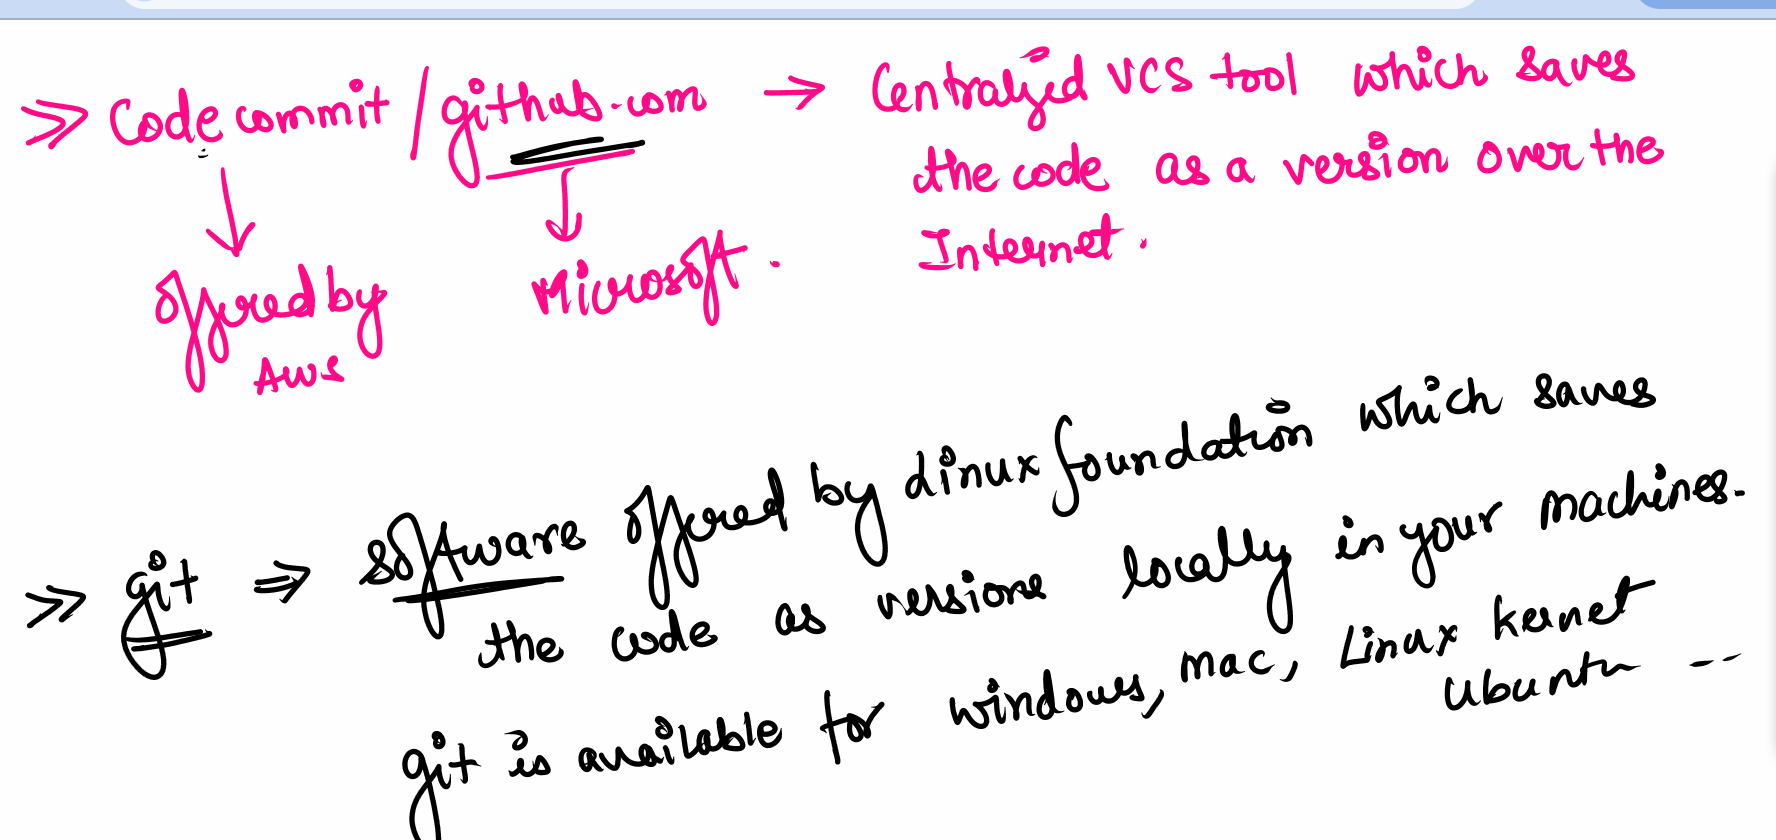 >> Codecommit / github.com → Centralized VCS tool which saves
the code as a version over the
Internet.
↓ offered by AWS
↓ Microsoft.
>> git ⇒ software offered by Linux foundation which saves
the code as versions locally in your machines.
git is available for windows, mac, Linux kernet
Ubuntu --